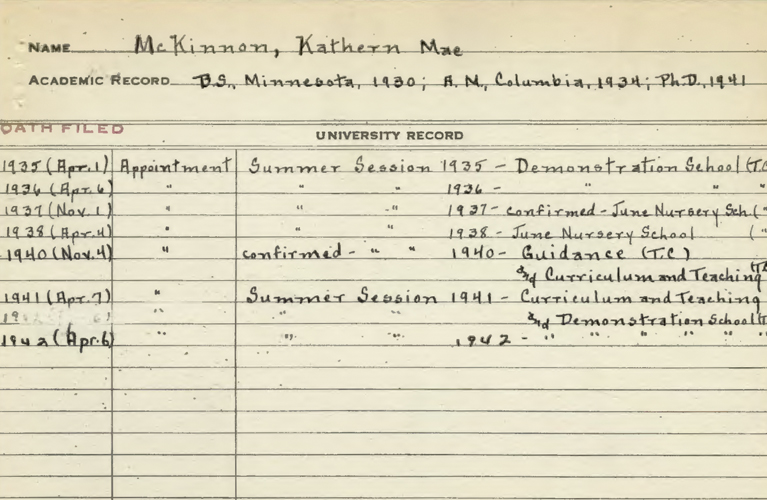 NAME McKinnon, Kathern Mae
ACADEMIC RECORD B.S., Minnesota, 1930; A.M., Columbia, 1934; Ph.D., 1941
OATH FILED
UNIVERSITY RECORD
1935 (Apr. 1) Appointment Summer Session 1935 - Demonstration School (T.C
1936 (Apr. 6) " " " 1936 - " "  "
1937 (Nov. 1) " " " 1937 - confirmed - June Nursery Sch. ( "
1938 (Apr. 4) " " " 1938 - June Nursery School ( "
1940 (Nov. 4) " confirmed - " " 1940 - Guidance (T.C)
and Curriculum and Teaching (T.
1941 (Apr. 7) " Summer Session 1941 - Curriculum and Teaching
" " " and Demonstration School (T.
1942 (Apr. 6) " " " 1942 - " " " " "